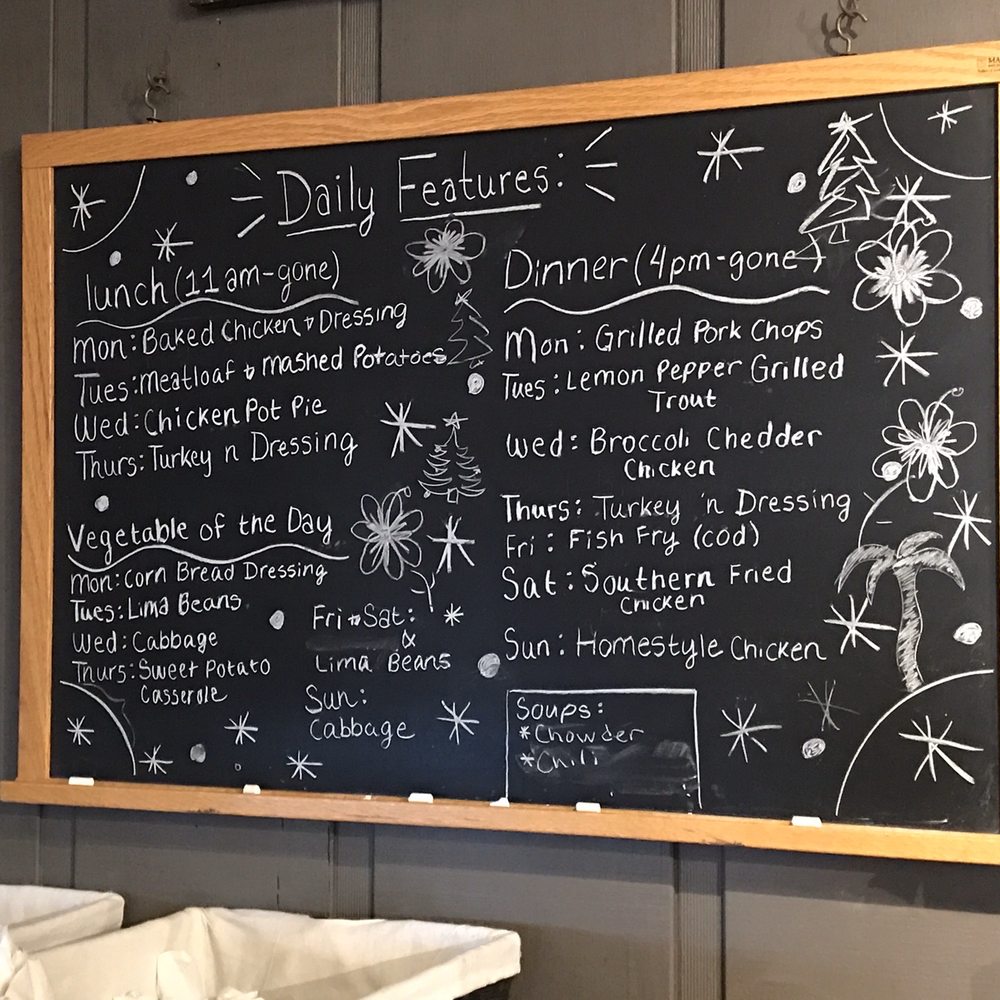 Daily Features:
lunch (11am-gone)
Mon: Baked Chicken & Dressing
Tues: Meatloaf & mashed Potatoes
Wed: Chicken Pot Pie
Thurs: Turkey n Dressing
Vegetable of the Day
Mon: Corn Bread Dressing
Tues: Lima Beans
Wed: Cabbage
Thurs: Sweet Potato
Casserole
Fri & Sat:
&
Lima Beans
Sun:
Cabbage
Dinner (4pm-gone)
Mon: Grilled Pork Chops
Tues: Lemon Pepper Grilled
Trout
Wed: Broccoli Chedder
Chicken
Thurs: Turkey 'n Dressing
Fri: Fish Fry (cod)
Sat: Southern Fried
Chicken
Sun: Homestyle Chicken
Soups:
*Chowder
*Chili